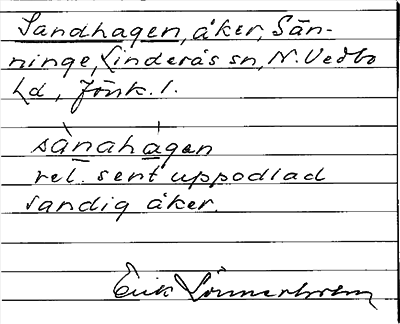 Sandhagen, åker, Sän-
ninge, Linderås sn, N. Vedbo
hd, Jönk. l.
sànahágen
rel. sent uppodlad
sandig åker.
Erik Lönnerholm